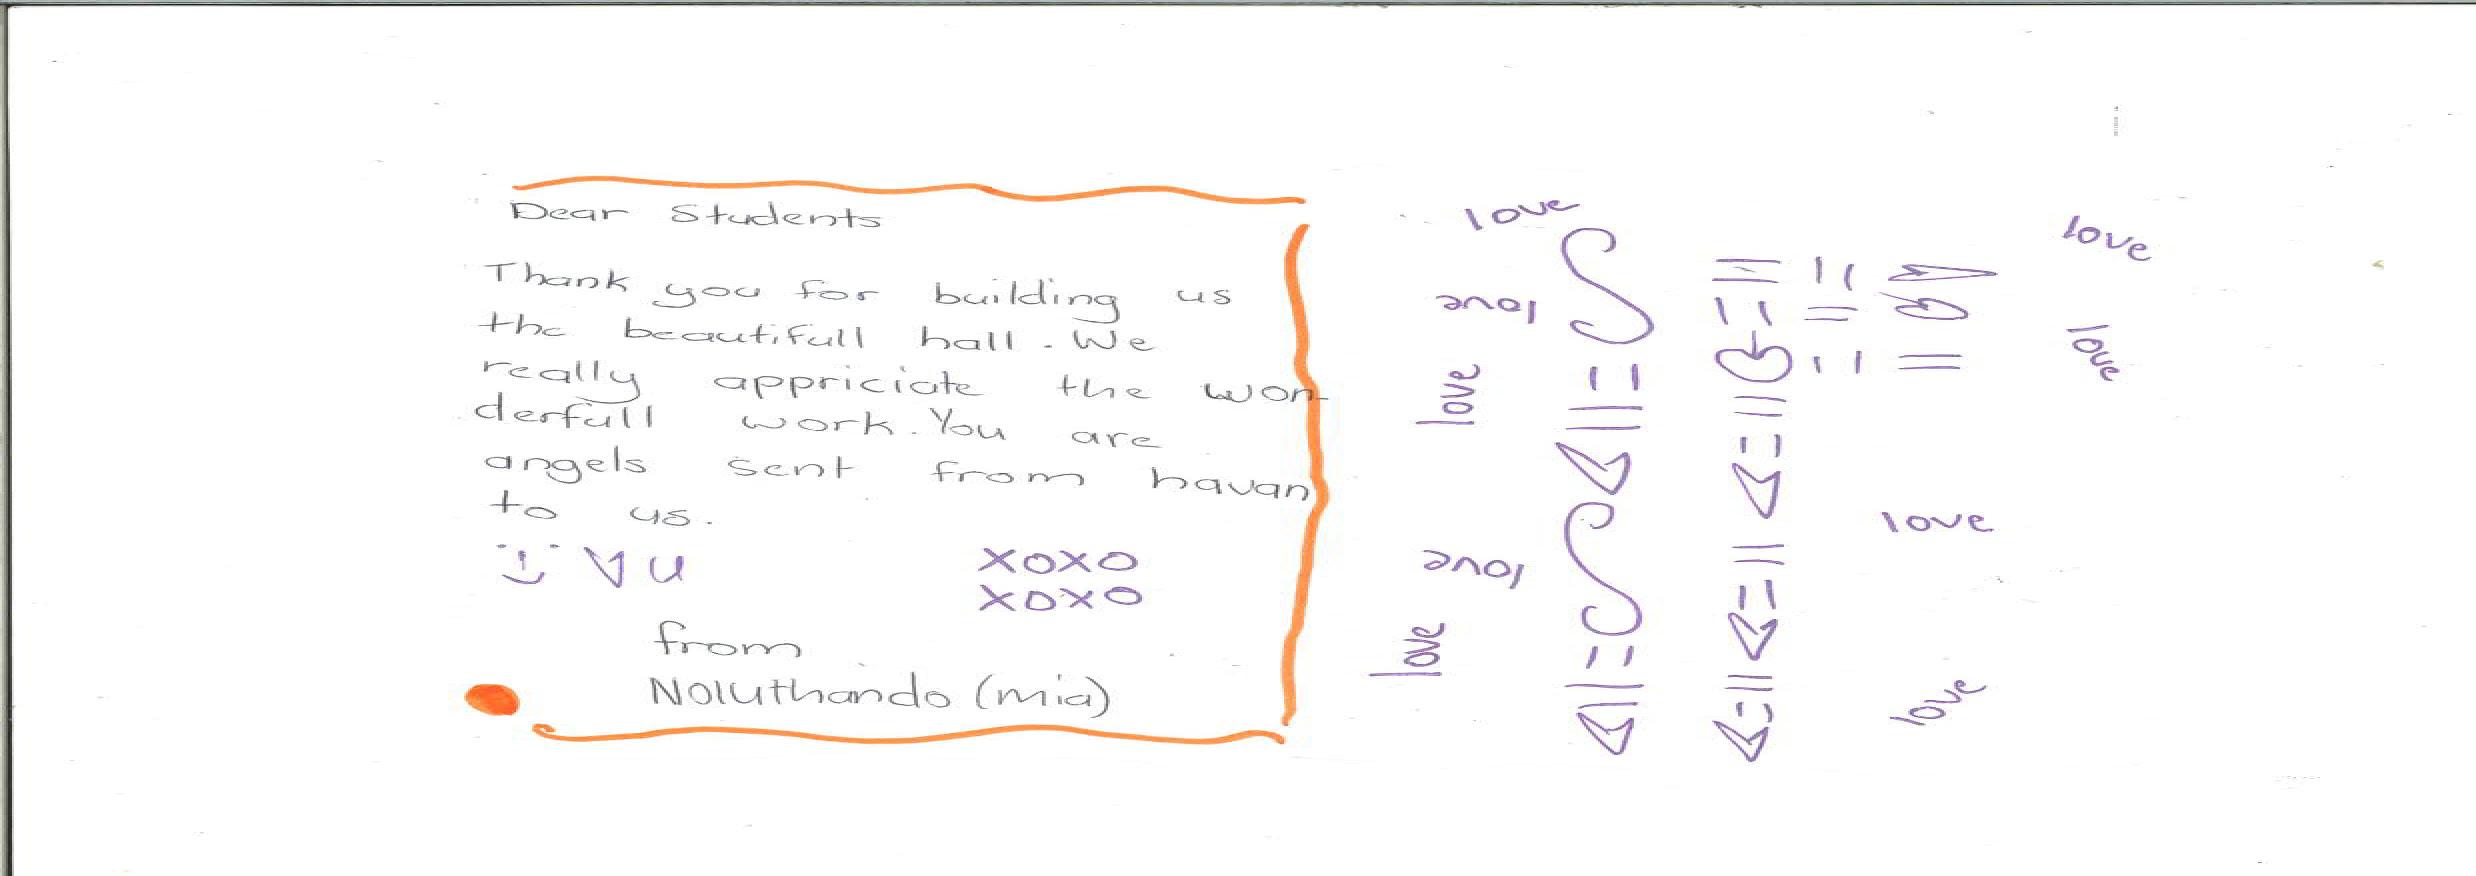 Dear Students
Thank you for building us
the beautifull hall. We
really appriciate the won-
derfull work. You are
angels sent from havan
to us.
XOXO
XOXO
from
Noluthando (mia)
love
love
love
love
love
love
love
love
love